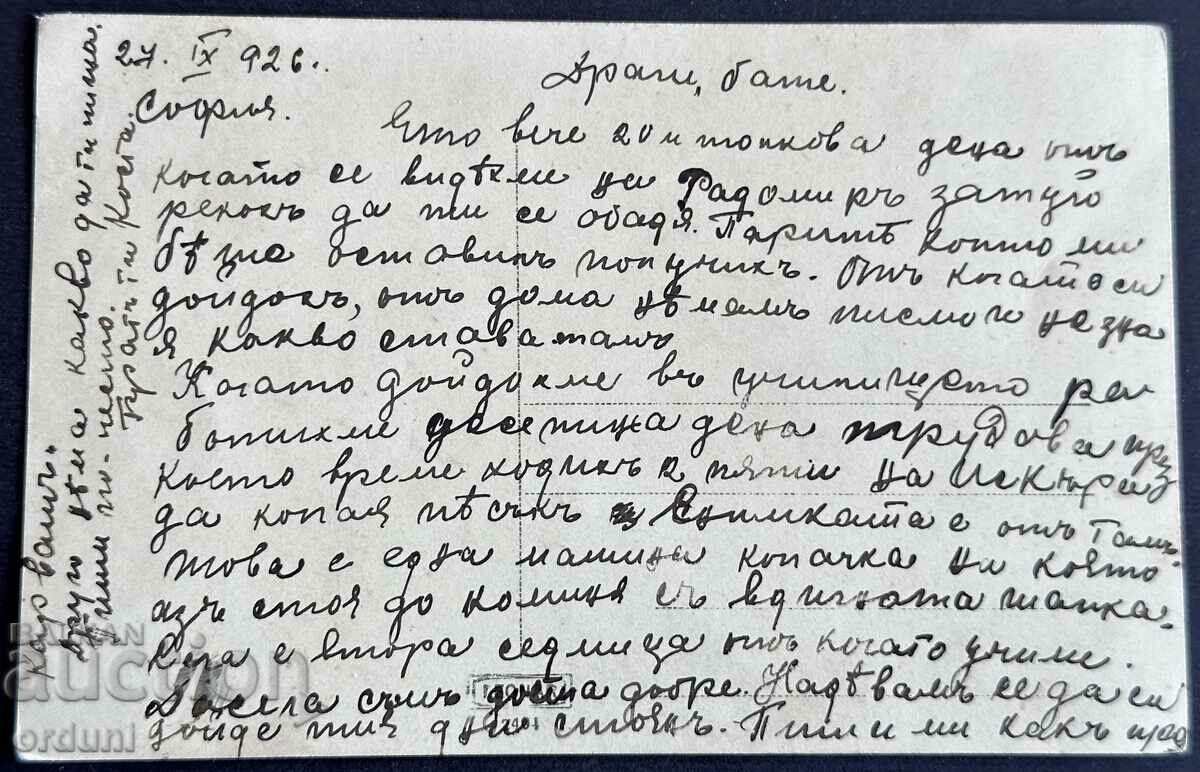 27. IX 926.
София.
Драги, бате.
Ето вече 20 и толкова дена отъ
когато се видѣхме на Радомиръ затуй
рекохъ да ти се обадя. Паритѣ които ми
бѣше оставилъ получихъ. Отъ когато си
дойдохъ, отъ дома нѣмамъ писмо и не зна
я какво става тамъ
Когато дойдохме въ училището ра
ботихме десетина дена трудова през
което време ходихъ 2 пяти на Искъра
да копая пѣсъкъ и Снимката е отъ тамъ
това е една машина копачка на която
азъ стоя до комина съ вдигната шапка.
Сега е втора седмица отъ когато учиме.
Засега съмъ доста добре. Надѣвамъ се да си
дойде тия дни Стоянъ. Пиши ми какъ
карвашъ.
Друго нѣма какво да ти пиша.
Пиши по-често.
Братъ ти Коста.
BALKAN
auction
orduni